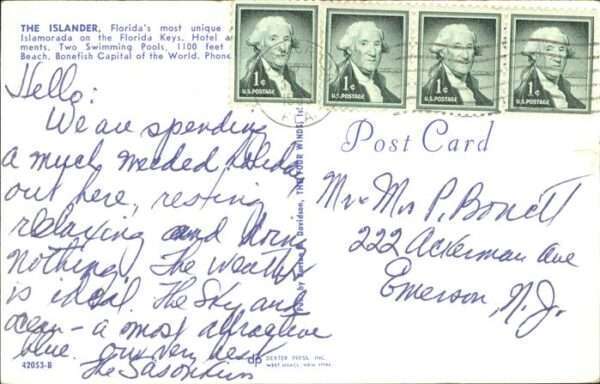 THE ISLANDER, Florida's most unique
Islamorada on the Florida Keys. Hotel
ments, Two Swimming Pools, 1100 feet
Beach. Bonefish Capital of the World. Phone
1¢ 1¢ 1¢ 1¢
U.S. POSTAGE U.S. POSTAGE U.S. POSTAGE U.S. POSTAGE
Post Card
Hello:
We are spending
a much needed holiday
out here, resting
relaxing and doing
nothing. The weather
is ideal. The Sky and
ocean - a most attractive
blue. our very best
The
Mr & Mrs P. Bonett
222 Ackerman Ave
Emerson, N.J.
Davidson, THE FOUR WINDS, Inc.
42053-B
dp
DEXTER PRESS, INC.
WEST NYACK, NEW YORK